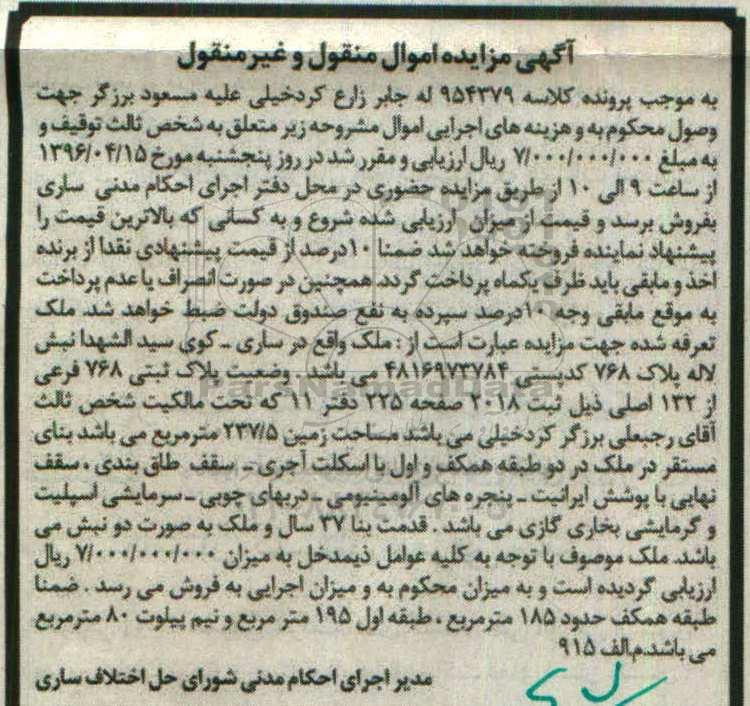 آگهی مزایده اموال منقول و غیر منقول
به موجب پرونده کلاسه ۹۵۴۳۷۹ له جابر زارع کردخیلی علیه مسعود برزگر جهت
وصول محکوم به و هزینه های اجرایی اموال مشروحه زیر متعلق به شخص ثالث توقیف و
به مبلغ ۷/۰۰۰/۰۰۰/۰۰۰ ریال ارزیابی و مقرر شد در روز پنجشنبه مورخ ۱۳۹۶/۰۴/۱۵
از ساعت ۹ الی ۱۰ از طریق مزایده حضوری در محل دفتر اجرای احکام مدنی ساری
بفروش برسد و قیمت از میزان ارزیابی شده شروع و به کسانی که بالاترین قیمت را
پیشنهاد نماینده فروخته خواهد شد ضمنا ۱۰درصد از قیمت پیشنهادی نقدا از برنده
اخذ و مابقی باید ظرف یکماه پرداخت گردد. همچنین در صورت انصراف یا عدم پرداخت
به موقع مابقی وجه ۱۰درصد سپرده به نفع صندوق دولت ضبط خواهد شد. ملک
تعرفه شده جهت مزایده عبارت است از : ملک واقع در ساری ـ کوی سید الشهدا نبش
لاله پلاک ۷۶۸ کدپستی ۴۸۱۶۹۷۳۷۸۴ می باشد . وضعیت پلاک ثبتی ۷۶۸ فرعی
از ۱۳۲ اصلی ذیل ثبت ۲۰۱۸ صفحه ۲۲۵ دفتر ۱۱ که تحت مالکیت شخص ثالث
آقای رجبعلی برزگر کردخیلی می باشد مساحت زمین ۲۳۷/۵ مترمربع می باشد بنای
مستقر در ملک در دو طبقه همکف و اول با اسکلت آجری ـ سقف طاق بندی ، سقف
نهایی با پوشش ایرانیت ـ پنجره های آلومینیومی ـ دربهای چوبی ـ سرمایشی اسپلیت
و گرمایشی بخاری گازی می باشد . قدمت بنا ۳۷ سال و ملک به صورت دو نبش می
باشد. ملک موصوف با توجه به کلیه عوامل ذیمدخل به میزان ۷/۰۰۰/۰۰۰/۰۰۰ ریال
ارزیابی گردیده است و به میزان محکوم به و میزان اجرایی به فروش می رسد . ضمنا
طبقه همکف حدود ۱۸۵ مترمربع ، طبقه اول ۱۹۵ متر مربع و نیم پیلوت ۸۰ مترمربع
می باشد.م.الف ۹۱۵
مدیر اجرای احکام مدنی شورای حل اختلاف ساری
ParsNamadData